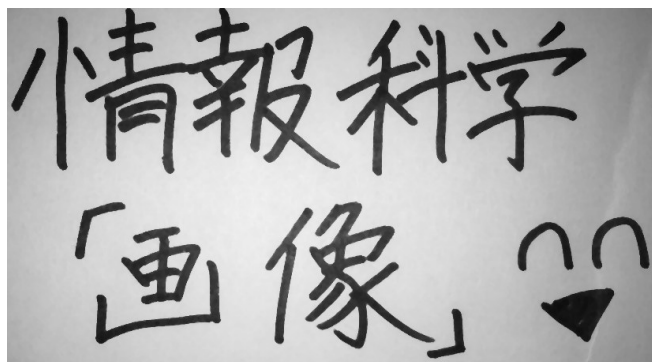 情報科学
「画像」